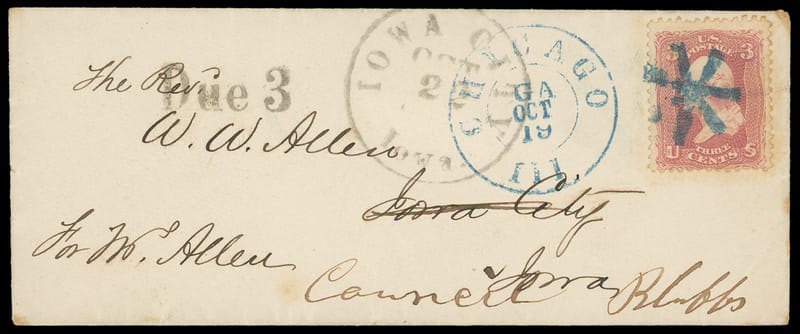 The Revd.
Due 3
W. W. Allen
Iowa City
For Wm. Allen
Iowa
Council Bluffs
IOWA CITY
OCT
2
Iowa.
CHICAGO
GA
OCT
19
Ill.
3 3
U.S.
POSTAGE
THREE
U CENTS S